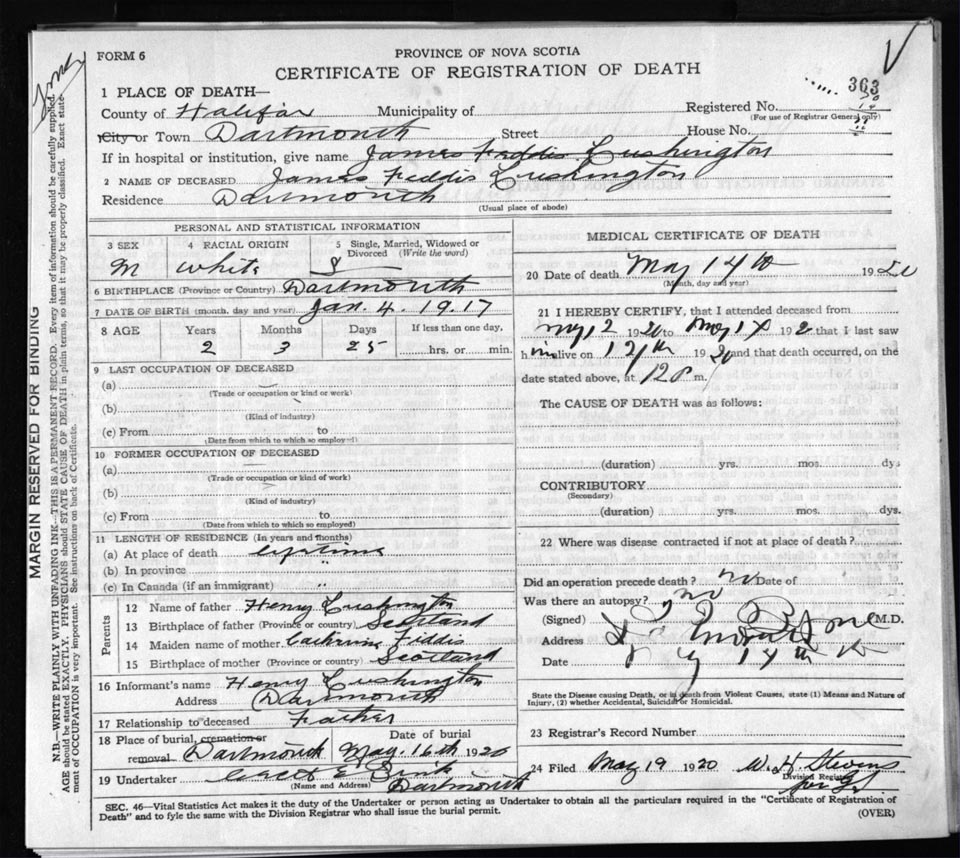 FORM 6
PROVINCE OF NOVA SCOTIA
CERTIFICATE OF REGISTRATION OF DEATH
1 PLACE OF DEATH—
363
County of Halifax Municipality of Registered No.
(For use of Registrar General only)
City or Town Dartmouth Street House No.
If in hospital or institution, give name James Feddis Lushington
2 NAME OF DECEASED James Feddis Lushington
Residence Dartmouth
(Usual place of abode)
PERSONAL AND STATISTICAL INFORMATION
3 SEX 4 RACIAL ORIGIN 5 Single, Married, Widowed or Divorced (Write the word)
M white S
6 BIRTHPLACE (Province or Country) Dartmouth
7 DATE OF BIRTH (month, day and year) Jan. 4. 1917
8 AGE Years Months Days If less than one day,
2 3 25 hrs. or min.
9 LAST OCCUPATION OF DECEASED
(a)
(Trade or occupation or kind or work)
(b)
(Kind of industry)
(c) From to
(Date from which to which so employed)
10 FORMER OCCUPATION OF DECEASED
(a)
(Trade or occupation or kind of work)
(b)
(Kind of industry)
(c) From to
(Date from which to which so employed)
11 LENGTH OF RESIDENCE (In years and months)
(a) At place of death lifetime
(b) In province "
(c) In Canada (if an immigrant) "
Parents
12 Name of father Henry Lushington
13 Birthplace of father (Province or country) Scotland
14 Maiden name of mother Catherine Feddis
15 Birthplace of mother (Province or country) Scotland
16 Informant's name Henry Lushington
Address Dartmouth
17 Relationship to deceased Father
18 Place of burial, cremation or removal Dartmouth
Date of burial May. 16th 1920
19 Undertaker
(Name and Address) Dartmouth
MEDICAL CERTIFICATE OF DEATH
20 Date of death May 14th 1920
(Month, day and year)
21 I HEREBY CERTIFY, that I attended deceased from
May 12 1920 to May 14 192 that I last saw
him alive on 12th 1920 and that death occurred, on the
date stated above, at 12 P m.
The CAUSE OF DEATH was as follows:
(duration) yrs. mos. dys
CONTRIBUTORY
(Secondary)
(duration) yrs. mos. dys.
22 Where was disease contracted if not at place of death?
Did an operation precede death? no Date of
Was there an autopsy? no
(Signed) M.D.
Address
Date 14th
State the Disease causing Death, or in death from Violent Causes, state (1) Means and Nature of
Injury, (2) whether Accidental, Suicidal or Homicidal.
23 Registrar's Record Number
24 Filed May 19 1920 W. H. Stevens
Division Registrar
SEC. 46—Vital Statistics Act makes it the duty of the Undertaker or person acting as Undertaker to obtain all the particulars required in the "Certificate of Registration of
Death" and to fyle the same with the Division Registrar who shall issue the burial permit.
(OVER)
MARGIN RESERVED FOR BINDING
N.B.—WRITE PLAINLY WITH UNFADING INK—THIS IS A PERMANENT RECORD. Every item of information should be carefully supplied.
AGE should be stated EXACTLY. PHYSICIANS should STATE CAUSE OF DEATH in plain terms, so that it may be properly classified. Exact state-
ment of OCCUPATION is very important. See instructions on back of Certificate.